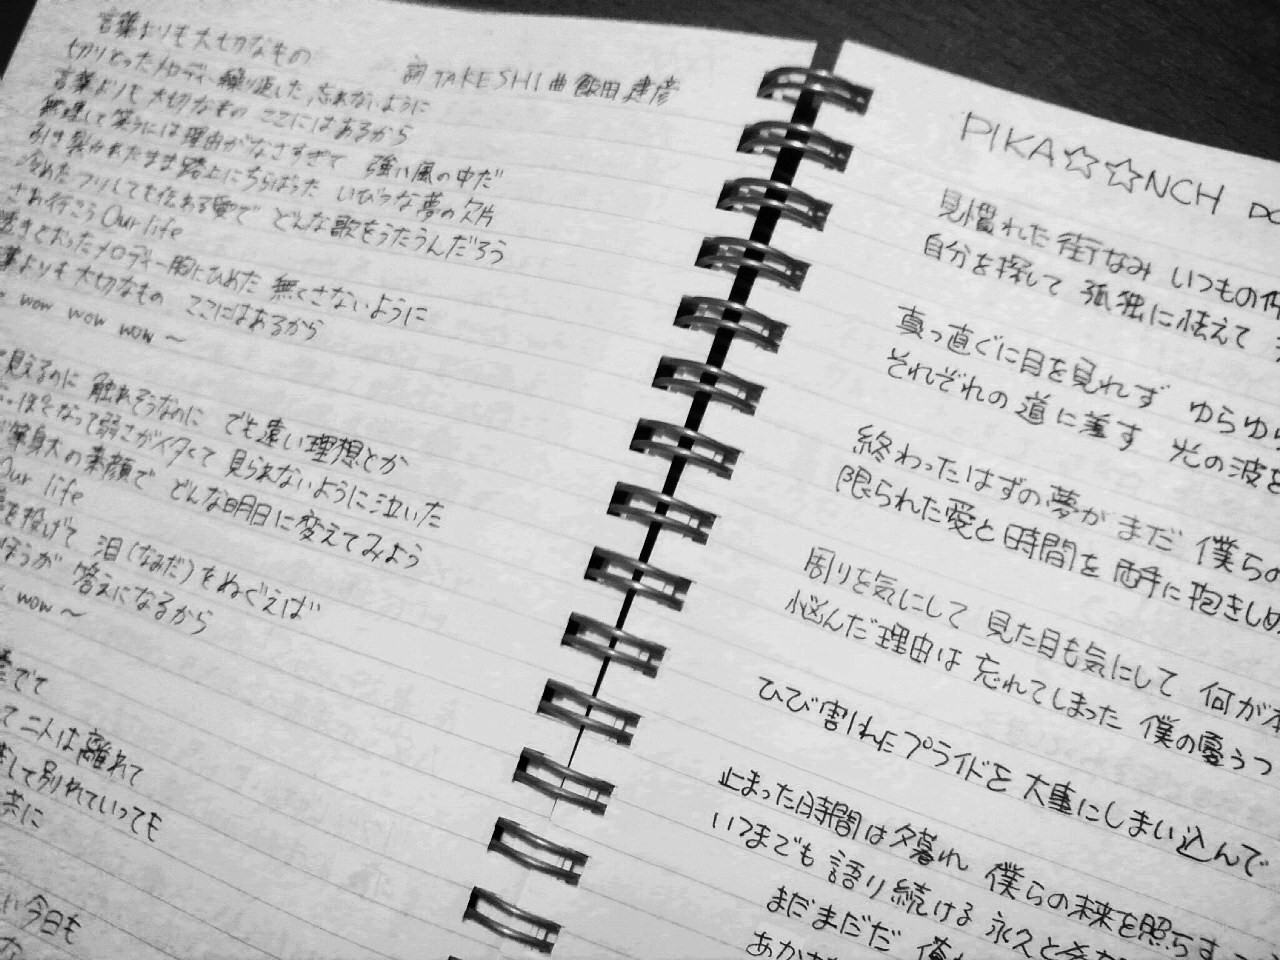 言葉よりも大切なもの
詞 TAKESHI 曲 飯田建彦
切りとったメロディ 繰り返した 忘れないように
言葉よりも大切なもの ここにはあるから
無理して笑うには理由がなさすぎて 強い風の中だ
引き裂かれたまま路上にちらばった いびつな夢の欠片
冷めたフリしても伝わる愛で どんな歌をうたうんだろう
行こう Our life
透きとおったメロディー 胸にひめた 無くさないように
葉よりも大切なもの ここにはあるから
wow wow wow ~
見えるのに 触れそうなのに でも遠い理想とか
なって弱さがイタくて 見られないように泣いた
等身大の素顔で どんな明日に変えてみよう
Our life
を投げて 泪(なみだ)をぬぐえば
ほうが 答えになるから
wow ~
でて
て二人は離れて
して別れていっても
共に
今日も
PIKA☆☆NCH
見慣れた街なみ いつもの
自分を探して 孤独に怯えて
真っ直ぐに目を見れず ゆらゆら
それぞれの道に差す 光の波を
終わったはずの夢がまだ 僕らの
限られた愛と時間を 両手に抱きしめ
周りを気にして 見た目も気にして 何が
悩んだ理由は 忘れてしまった 僕の憂うつ
ひび割れたプライドを 大事にしまい込んで
止まった時間は夕暮れ 僕らの未来を照らす
いつまでも 語り続ける 永久と
まだまだだ 俺
あかな